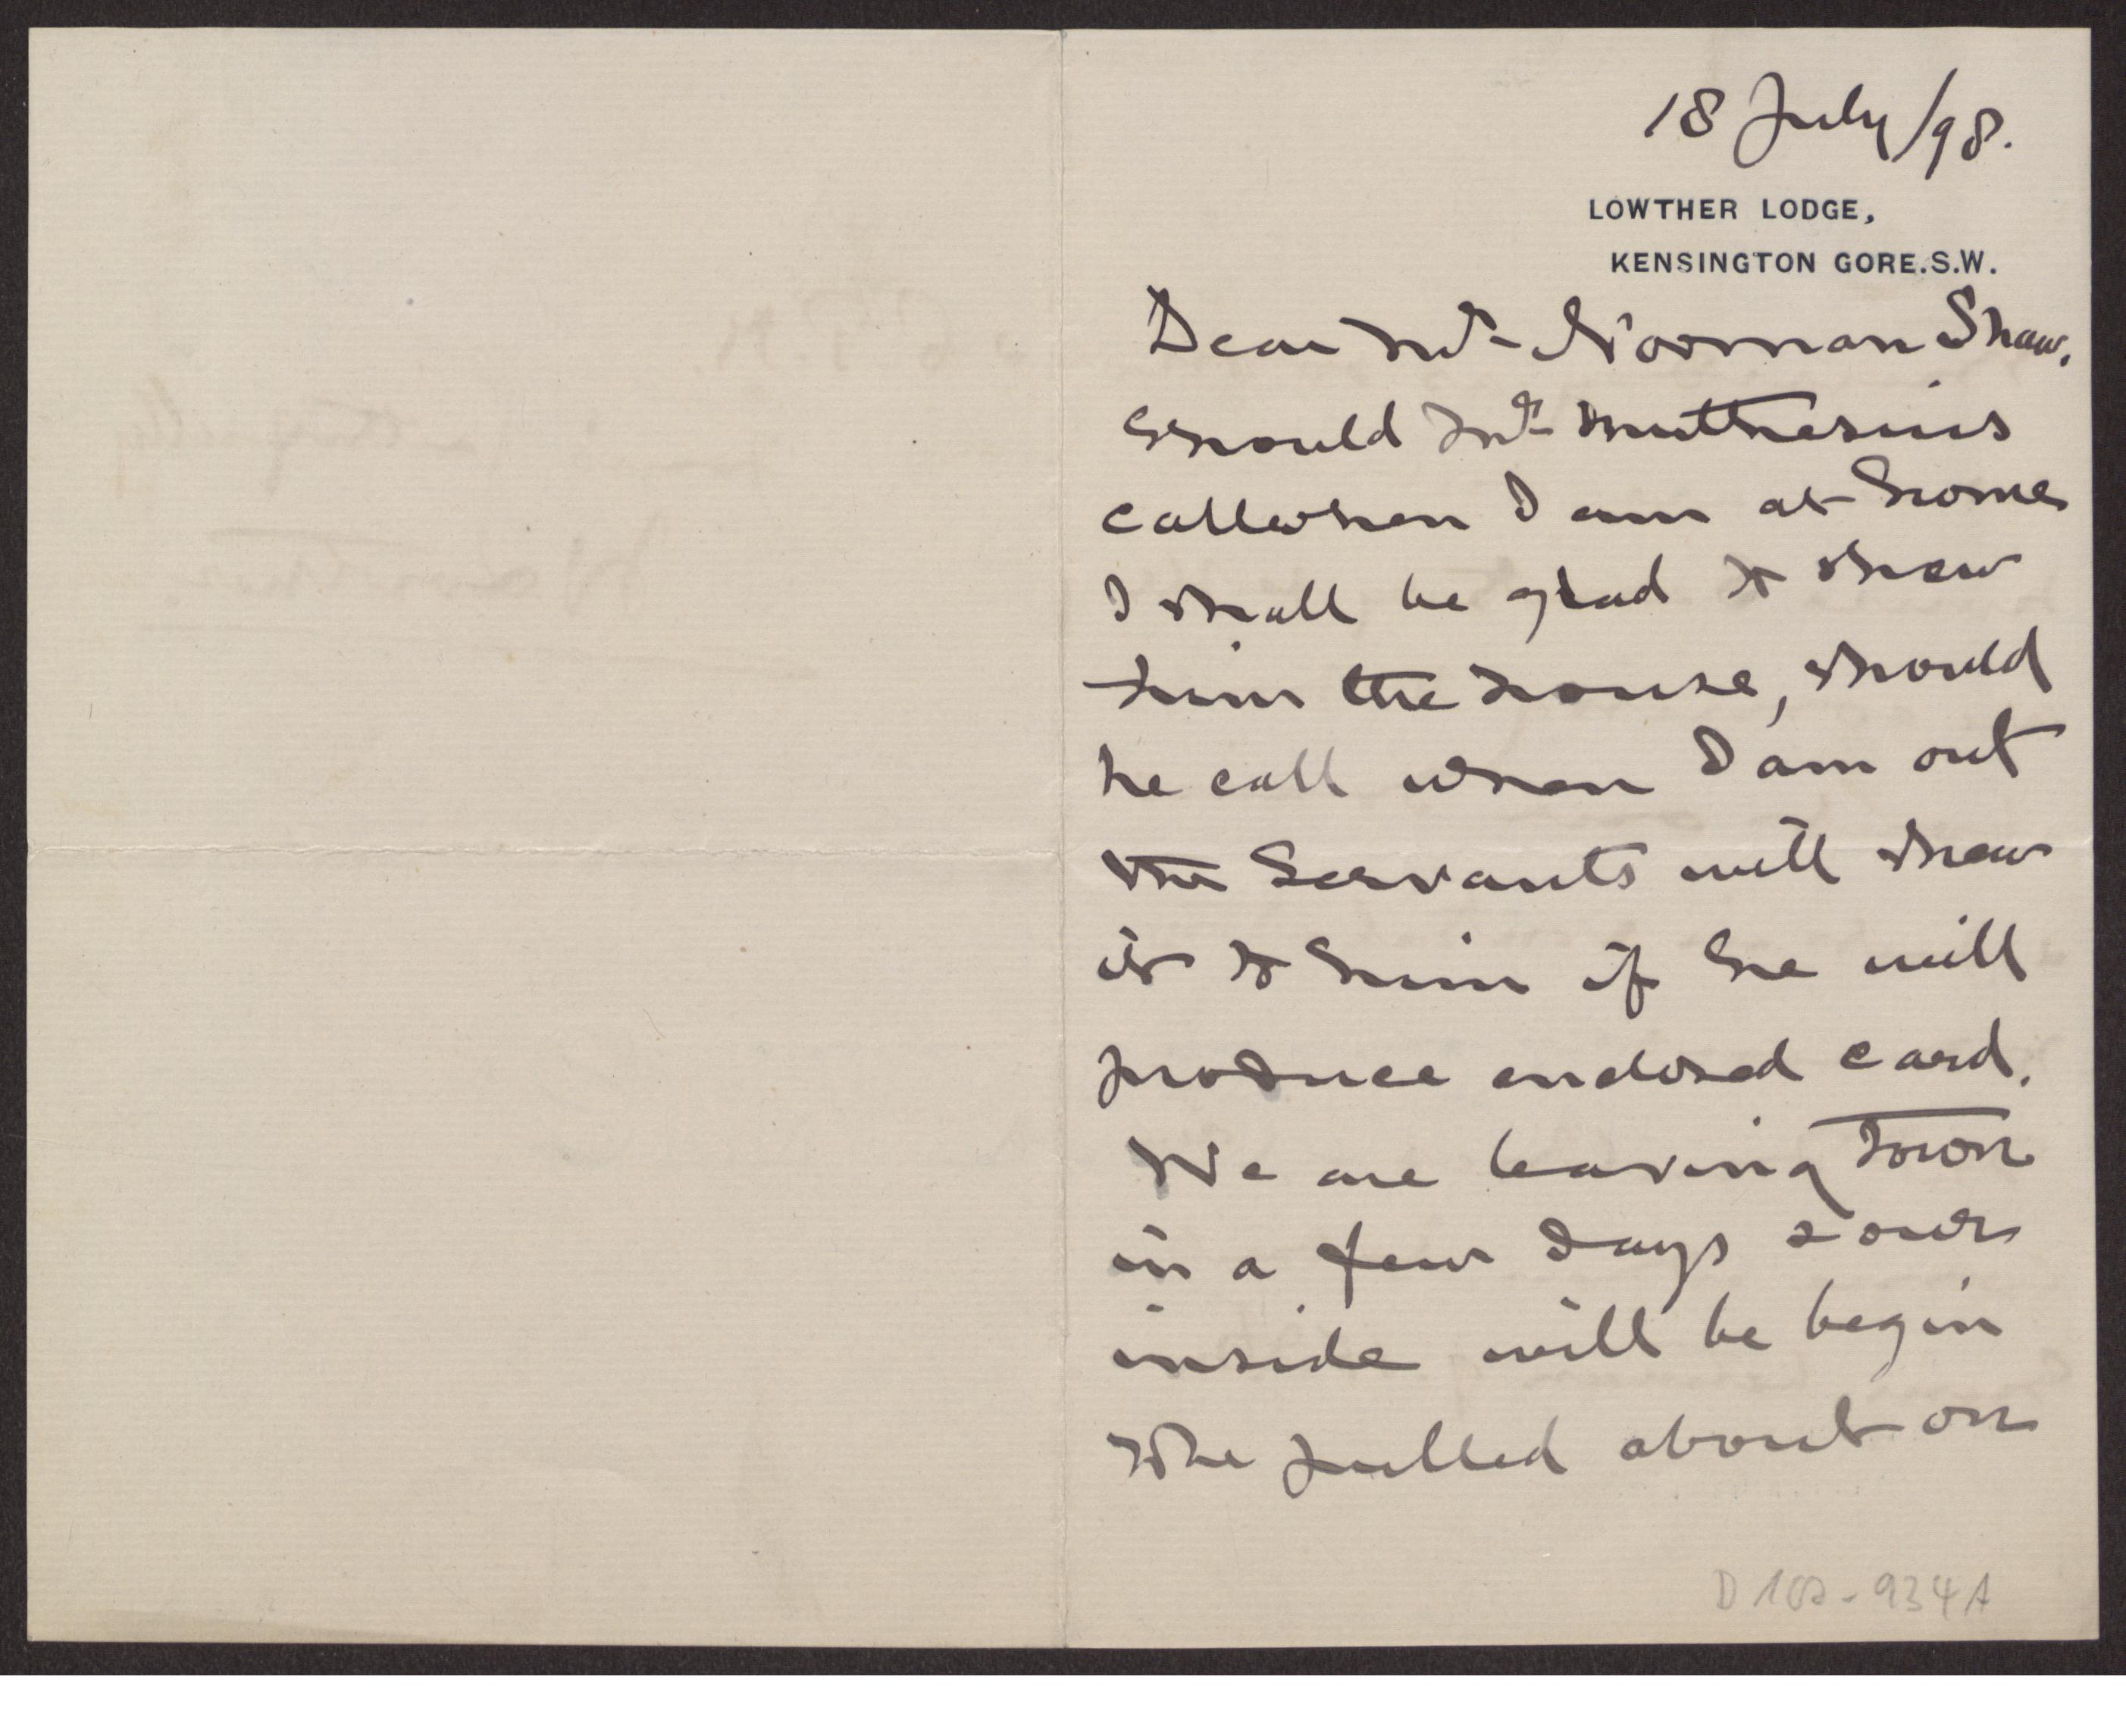 18 July /98.
LOWTHER LODGE,
KENSINGTON GORE. S.W.
Dear Mr. Norman Shaw.
Should Mr. Muthesius
call when I am at home
I shall be glad to shew
him the house, should
he call when I am out
the Servants will shew
it to him if he will
produce enclosed card.
We are leaving Town
in a few days & our
inside will be begin
to be pulled about on
D 102-934A